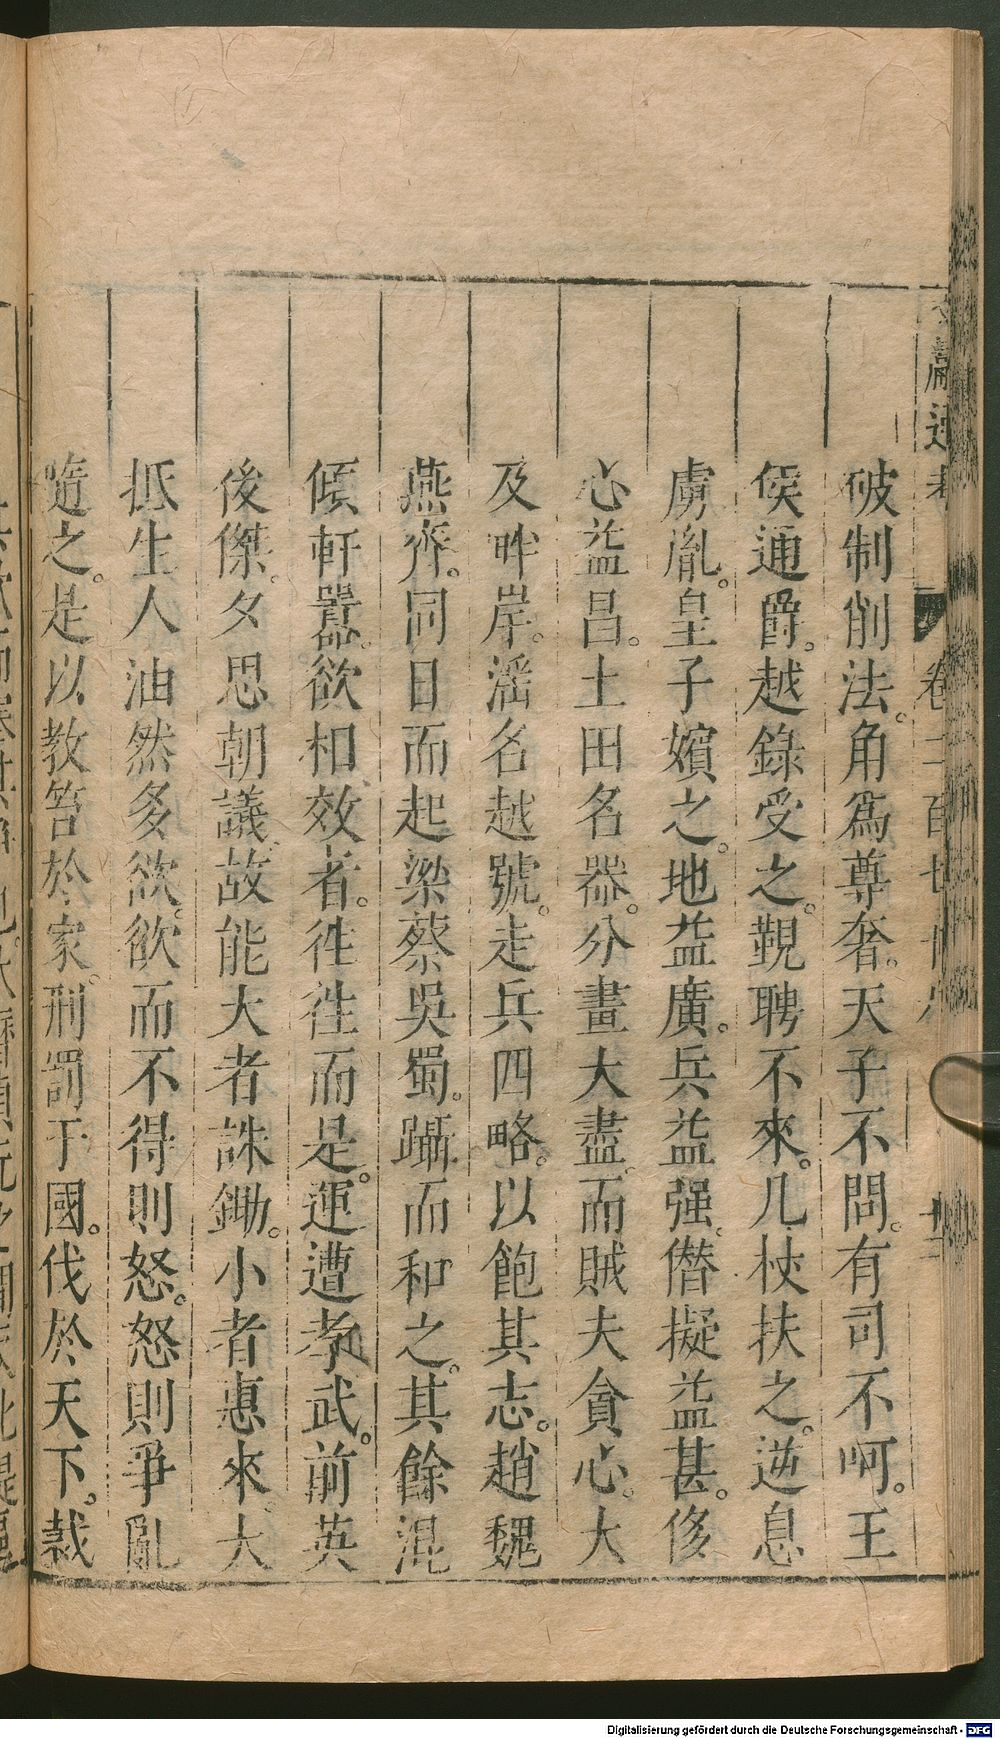 破制削法。角爲尊奢。天子不問。有司不呵。王
侯通爵。越錄受之。覲聘不來。几杖扶之。逆息
虜胤。皇子嬪之。地益廣。兵益强。僭擬益甚。侈
心益昌。土田名器。分畫大盡。而賊夫貪心。大
及畔岸。滛名越號。走兵四略。以飽其志。趙魏
燕齊。同日而起。梁蔡吳蜀。躡而和之。其餘混
傾軒囂。欲相效者。徃徃而是。運遭孝武。前英
後傑。夕思朝議。故能大者誅鋤。小者惠來。大
抵生人油然多欲。欲而不得則怒。怒則爭亂
隨之。是以教笞於家。刑罰于國。伐於天下。裁
Digitalisierung gefördert durch die Deutsche Forschungsgemeinschaft - DFG